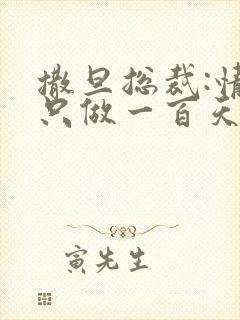 撒旦总裁:情
只做一百天
寅先生